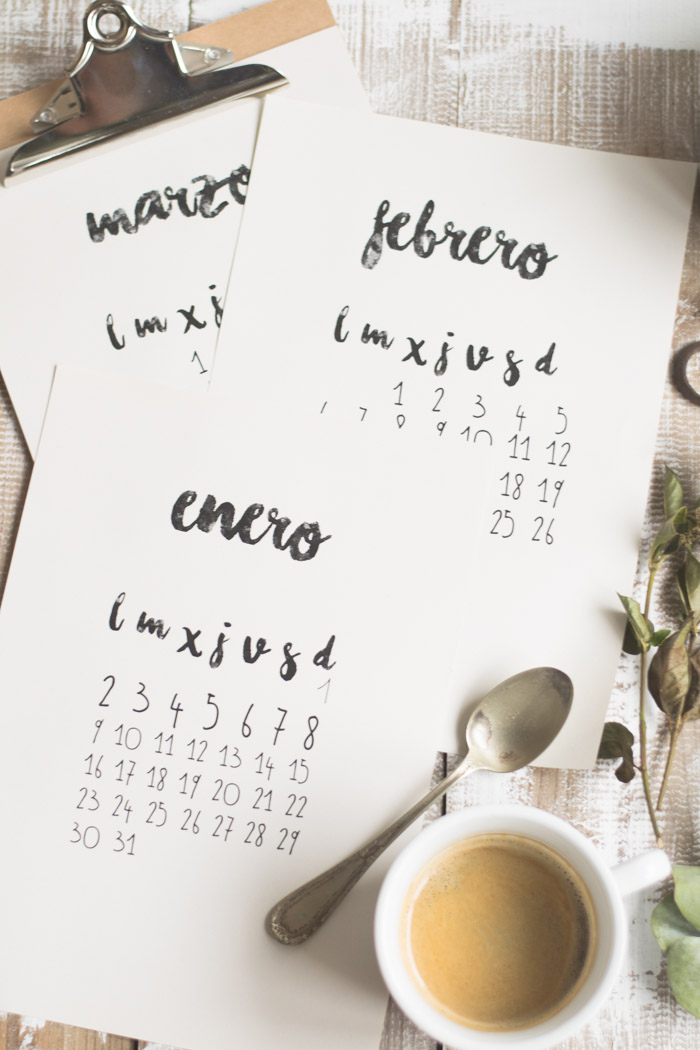 marzo
l m x j
1
febrero
l m x j v s d
1 2 3 4 5
7 9 10 11 12
18 19
25 26
enero
l m x j v s d
1
2 3 4 5 6 7 8
9 10 11 12 13 14 15
16 17 18 19 20 21 22
23 24 25 26 27 28 29
30 31